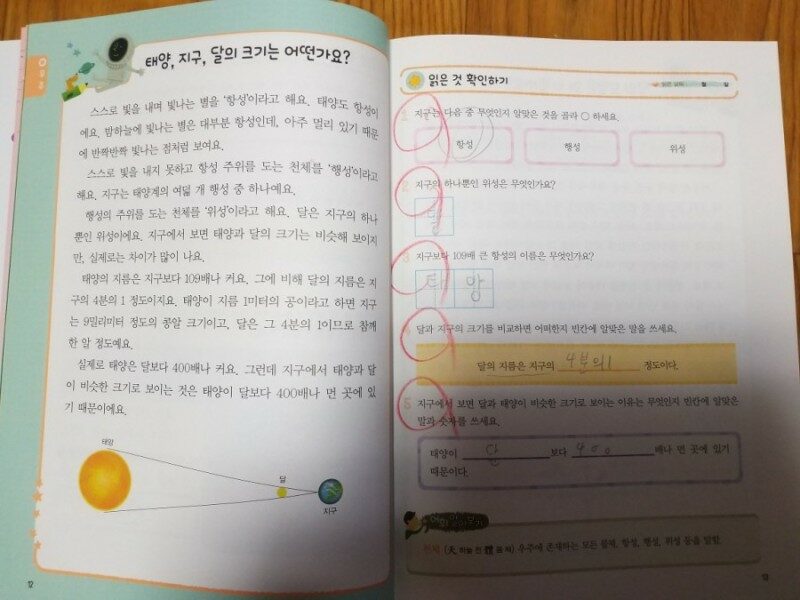 태양, 지구, 달의 크기는 어떤가요?
스스로 빛을 내며 빛나는 별을 '항성'이라고 해요. 태양도 항성이
에요. 밤하늘에 빛나는 별은 대부분 항성인데, 아주 멀리 있기 때문
에 반짝반짝 빛나는 점처럼 보여요.
스스로 빛을 내지 못하고 항성 주위를 도는 천체를 '행성'이라고
해요. 지구는 태양계의 여덟 개 행성 중 하나예요.
행성의 주위를 도는 천체를 '위성'이라고 해요. 달은 지구의 하나
뿐인 위성이에요. 지구에서 보면 태양과 달의 크기는 비슷해 보이지
만, 실제로는 차이가 많이 나요.
태양의 지름은 지구보다 109배나 커요. 그에 비해 달의 지름은 지
구의 4분의 1 정도이지요. 태양이 지름 1미터의 공이라고 하면 지구
는 9밀리미터 정도의 콩알 크기이고, 달은 그 4분의 1이므로 참깨
한 알 정도예요.
실제로 태양은 달보다 400배나 커요. 그런데 지구에서 태양과 달
이 비슷한 크기로 보이는 것은 태양이 달보다 400배나 먼 곳에 있
기 때문이에요.
태양
달
지구
12
읽은 것 확인하기
읽은 날짜 월 일
1 지구는 다음 중 무엇인지 알맞은 것을 골라 ○ 하세요.
항성 행성 위성
2 지구의 하나뿐인 위성은 무엇인가요?
달
3 지구보다 109배 큰 항성의 이름은 무엇인가요?
태양
4 달과 지구의 크기를 비교하면 어떠한지 빈칸에 알맞은 말을 쓰세요.
달의 지름은 지구의 4분의1 정도이다.
5 지구에서 보면 달과 태양이 비슷한 크기로 보이는 이유는 무엇인지 빈칸에 알맞은
말과 숫자를 쓰세요.
태양이 달 보다 400 배나 먼 곳에 있기
때문이다.
천체 (天 하늘 천 體 몸 체) 우주에 존재하는 모든 물체. 항성, 행성, 위성 등을 말함.
13